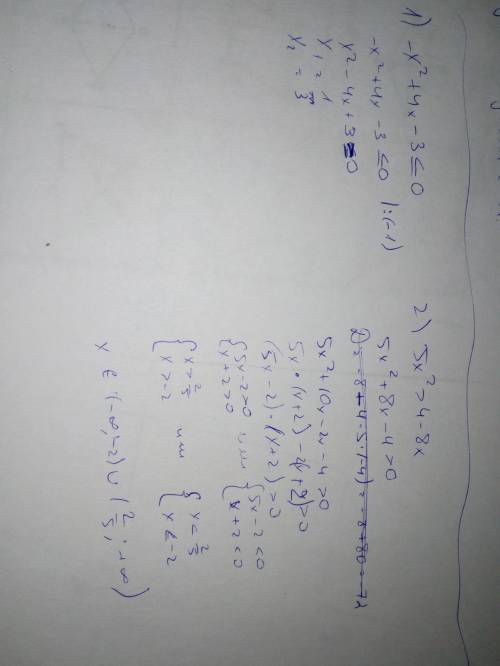 1) -x²+4x-3≤0
-x²+4x-3≤0 |:(-1)
x²-4x+3≥0
x₁=1
x₂=3
2) 5x²>4-8x
5x²+8x-4>0
5x²+10x-2x-4>0
5x·(x+2)-2(x+2)>0
(5x-2)·(x+2)>0
{5x-2>0 или {5x-2<0
{x+2>0 {x+2<0
{x>2/5 или {x<2/5
{x>-2 {x<-2
x ∈ (-∞;-2) ∪ (2/5; +∞)